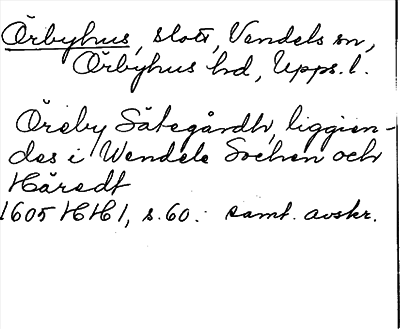 Örbyhus, slott, Vendels sn,
Örbyhus hd, Upps. l.
Öreby Sätegårdh, liggien-
des i Wendele Sochen och
Häredt
1605 HH 1, s. 60. samt. avskr.